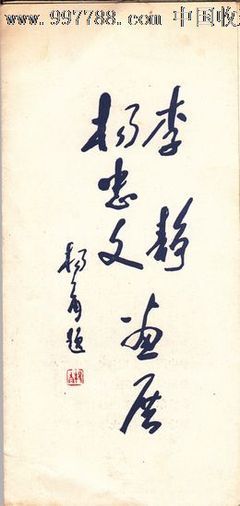 www.997788.com 中国收
李静画展
杨忠文
杨角题